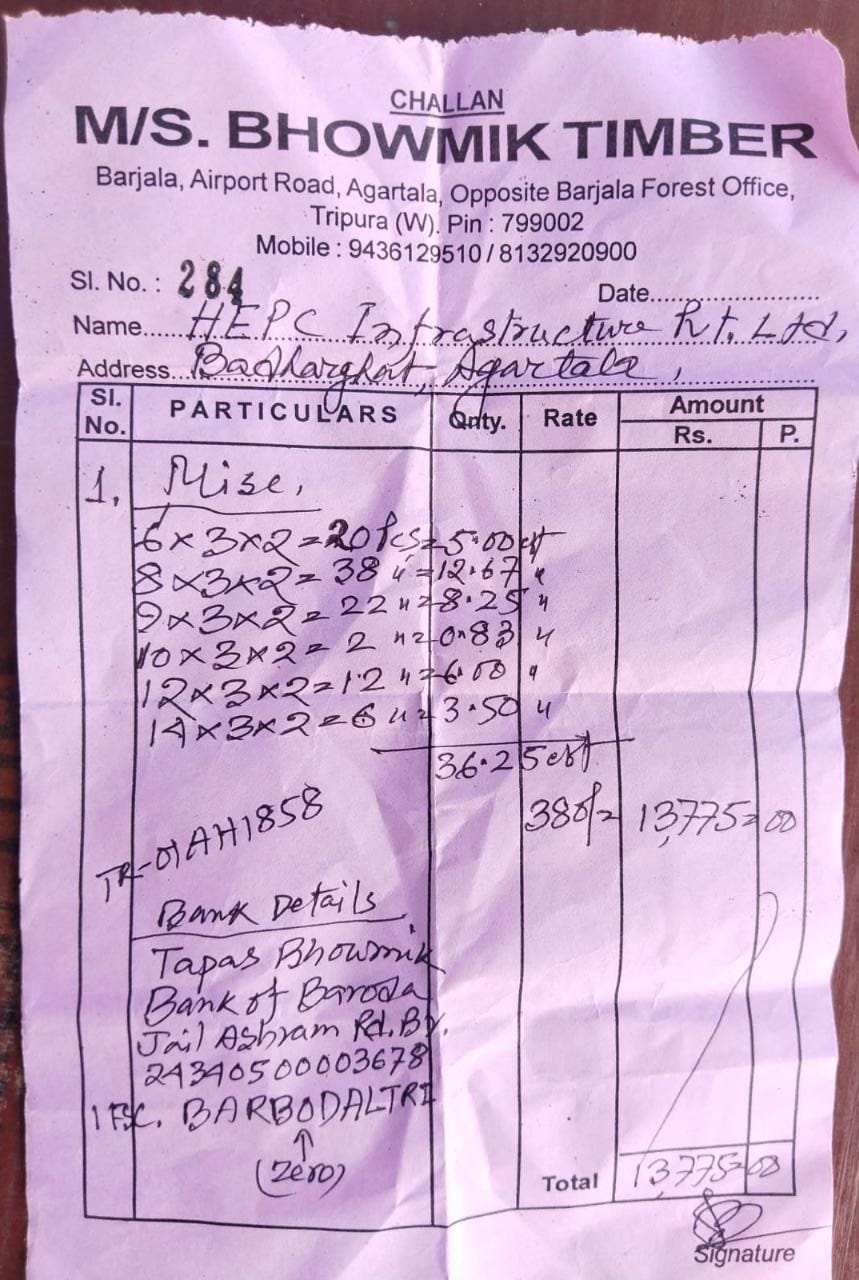 CHALLAN
M/S. BHOWMIK TIMBER
Barjala, Airport Road, Agartala, Opposite Barjala Forest Office,
Tripura (W). Pin : 799002
Mobile : 9436129510 / 8132920900
Sl. No. : 284 Date......................
Name..... HEPC Infrastructure Pvt. Ltd,
Address... Badharghat, Agartala,
Sl. No. PARTICULARS Qnty. Rate Amount Rs. P.
1. Misc,
6×3×2=20Pcs=5.00cft
8×3×2=38 " =12.67 "
9×3×2=22 " =8.25 "
10×3×2=2 " =0.83 "
12×3×2=12 " =6.00 "
14×3×2=6 " =3.50 "
36.25cft
380/= 13,775=00
TR-01AH1858
Bank Details
Tapas Bhowmik
Bank of Baroda
Jail Ashram Rd. Br.
24340500003678
IFSC. BARB0DALTRI
↑
(Zero)
Total 13,775=00
Signature